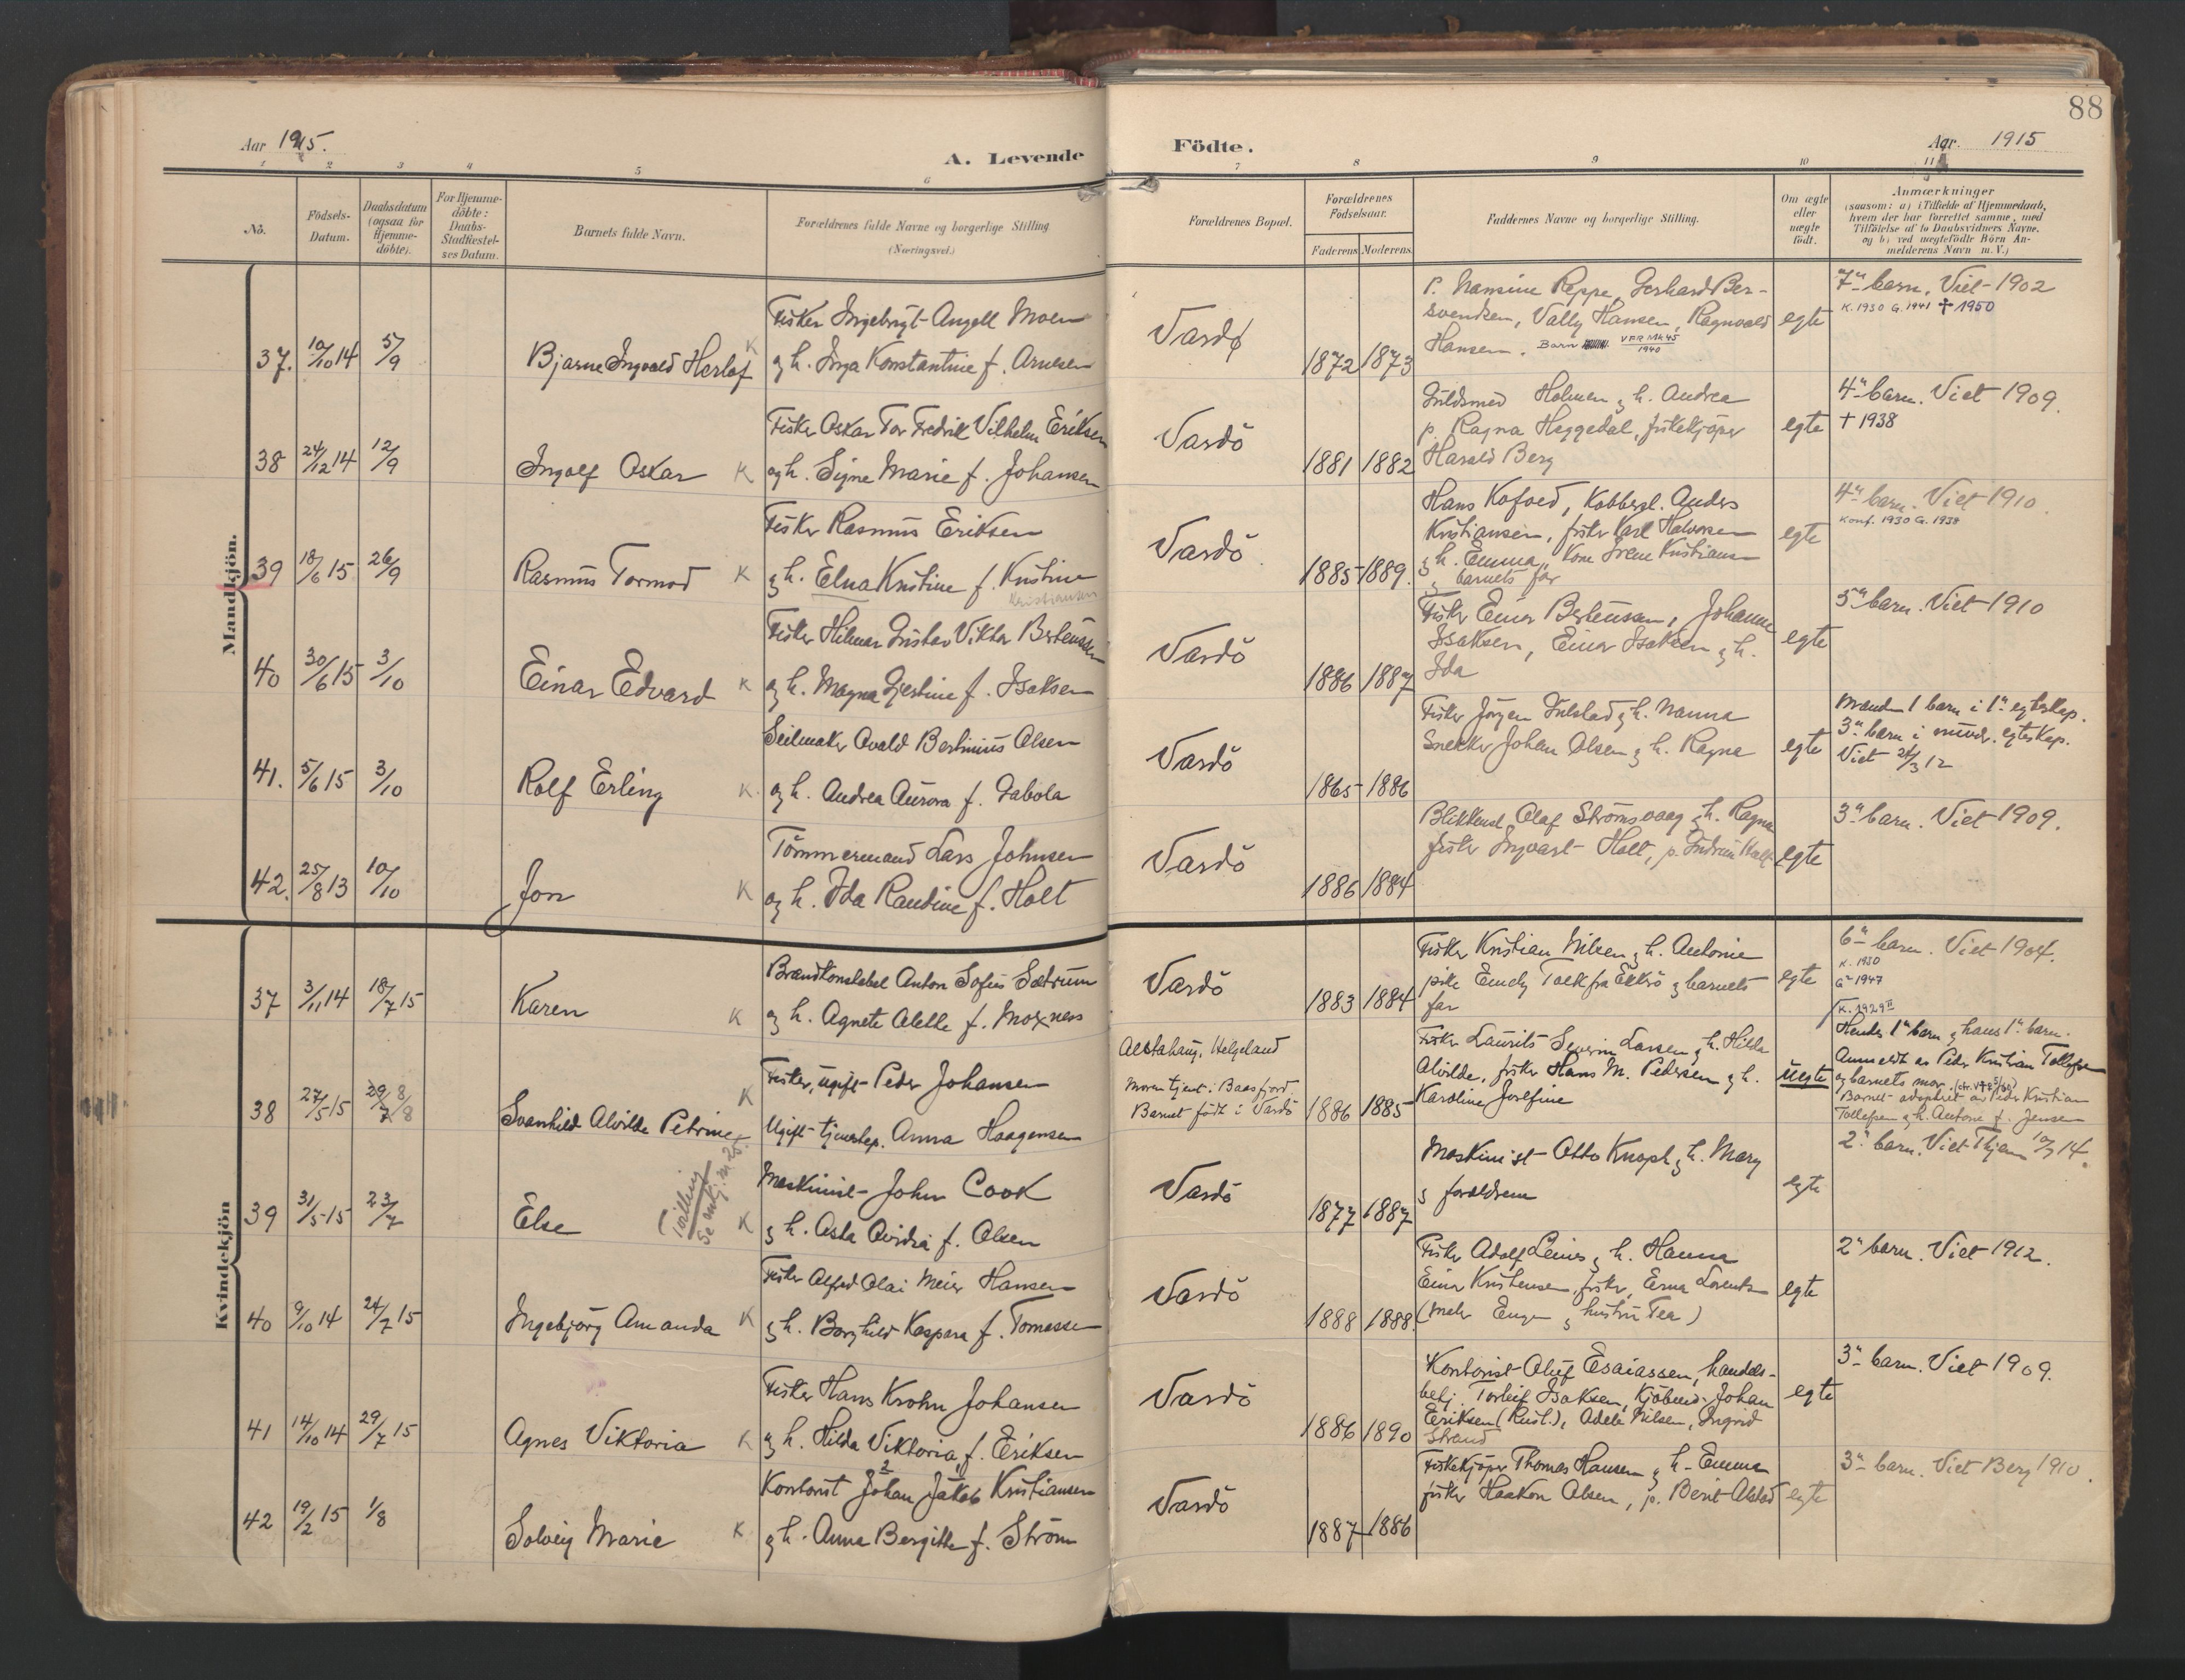 88
Aar 1915.
A. Levende
Födte.
Aar. 1915
1 2 3 4 5 6 7 8 9 10 11
No.
Födsels-
Datum.
Daabsdatum
(ogsaa for
Hjemme-
döbte).
For Hjemme-
döbte:
Daabs-
Stadfæstel-
ses Datum.
Barnets fulde Navn.
Forældrenes fulde Navne og borgerlige Stilling
(Næringsvei.)
Forældrenes Bopæl.
Forældrenes
Födselsaar.
Faderens Moderens
Faddernes Navne og borgerlige Stilling.
Om ægte
eller
uægte
födt.
Anmærkninger
(saasom: a) i Tilfælde af Hjemmedaab,
hvem der har forrettet samme, med
Tilföielse af to Daabsvidners Navne,
og b) ved uægtefödte Börn An-
melderens Navn m. V.)
Mandkjön.
37. 10/10 14 5/9
Bjarne Ingvald Herlof K
Fisker Ingebrigt Angell Moen
og h. Inga Konstantine f. Arnesen
Vardø
1872 1873
P. Nansine Reppe, Gerhard Ber-
svendsen, Vally Hansen, Ragnvald
Hansen. Barn VFR Mk 45
1940
egte
7de barn. Viet 1902
K. 1930 G. 1941 ✝ 1950
38 24/12 14 12/9
Ingolf Oskar K
Fisker Oskar Tor Fredrik Vilhelm Eriksen
og h. Signe Marie f. Johansen
Vardö
1881 1882
Guldsmed Holmen og h. Andrea
p. Ragna Heggedal, fiskekjöper
Harald Berg
egte
4de barn. Viet 1909.
✝ 1938
39 18/6 15 26/9
Rasmus Tormod K
Fisker Rasmus Eriksen
og h. Elna Kristine f. Kristine
Kristiansen
Vardö
1885 1889.
Hans Kofoed, Kobbersl. Anders
Kristiansen, fisker Karl Halvorsen
og h. Emma, Kone Irene Kristiansen
og barnets far
egte
4de barn. Viet 1910.
Konf. 1930 G. 1938
40 30/6 15 3/10
Einar Edvard K
Fisker Hilmar Gustav Viktor Berteussen
og h. Magna Gjertine f. Isaksen
Vardö
1886 1887
Fisker Einar Berteussen, Johanne
Isaksen, Einar Isaksen og h.
Ida
egte
5te barn. Viet 1910
41. 5/6 15 3/10
Rolf Erling K
Seilmaker Ovald Bertinius Olsen
og h. Andrea Aurora f. Dabola
Vardö
1865 1886
Fisker Jörgen Gulstad og h. Nanna
Snekker Johan Olsen og h. Ragna
egte
Manden 1 barn i 1ste egteskap.
3die barn i nuvær. egteskap.
Viet 24/3 12
42. 25/8 13 10/10
Jon K
Tömmermand Lars Johnsen
og h. Ida Randine f. Holt
Vardö
1886 1884
Blikkensl. Olaf Strömsvaag og h. Ragna
fisker Ingvart Holt, p. Gudrun Holt
egte
3die barn. Viet 1909.
Kvindekjön
37 3/11 14 18/7 15
Karen K
Brandkonstabel Anton Sofus Sætrum
og h. Agnete Alette f. Moxness
Vardö
1883 1884
Fisker Kristian Nilsen og h. Antonie
pike Emely Falk fra Ekkerö og barnets
far
egte
6te barn. Viet 1904.
K. 1930
G 1947
38 27/5 15 29/7 8/8
Svanhild Alvilde Petrine K
Fisker, ugift Peder Johansen
Ugift tjenerskap. Anna Haagensen
Alstahaug, Helgeland
Moren tjent i Baasfjord
Barnet födt i Vardö
1886 1885
Fisker Laurits Severin Larsen og h. Hilda
Alvilde, fisker Hans M. Pedersen og h.
Karoline Josefine
uegte
K. 1929 II
Hendes 1ste barn og hans 1ste barn.
Anmeldt av Peder Kristian Tollefsen
og barnets mor.
Barnet adoptert av Peder Kristian
Tollefsen og h. Antone f. Jensen
39 31/5 15 23/7
Else K
Tvilling
Se mkj. nr. 25.
Maskinist John Cook
og h. Asta Ovidia f. Olsen
Vardö
1877 1887
Maskinist Otto Knoph og h. Mary
og forældrene
egte
2. barn. Viet Thjem 10/7 14.
40 9/10 14 24/7 15
Ingebjörg Amanda K
Fisker Alfred Olai Meier Hansen
og h. Borghild Kaspara f. Tomassen
Vardö
1888 1888.
Fisker Adolf Leines og h. Hanna
Einar Kristensen fisker, Erna Lorentsen
(maler Eugen og hustru Tea)
egte
2det barn. Viet 1912.
41 14/10 14 29/7 15
Agnes Viktoria K
Fisker Hans Krohn Johansen
og h. Hilda Viktoria f. Eriksen
Vardö
1886 1890
Kontorist Oluf Esaiassen, handels-
betj. Torleif Isaksen, Kjöbmd. Johan
Eriksen (Hust.), Adele Nilsen, Ingrid
Strand
egte
3die barn. Viet 1909.
42 19/2 15 1/8
Solveig Marie K
Kontorist Johan Jakob Kristiansen
og h. Anna Bergitte f. Ström
Vardö
1887 1886
Fiskekjöper Thomas Hansen og h. Emma
fisker Haakon Olsen, p. Berit Alstad
egte
3die barn. Viet Berg 1910.